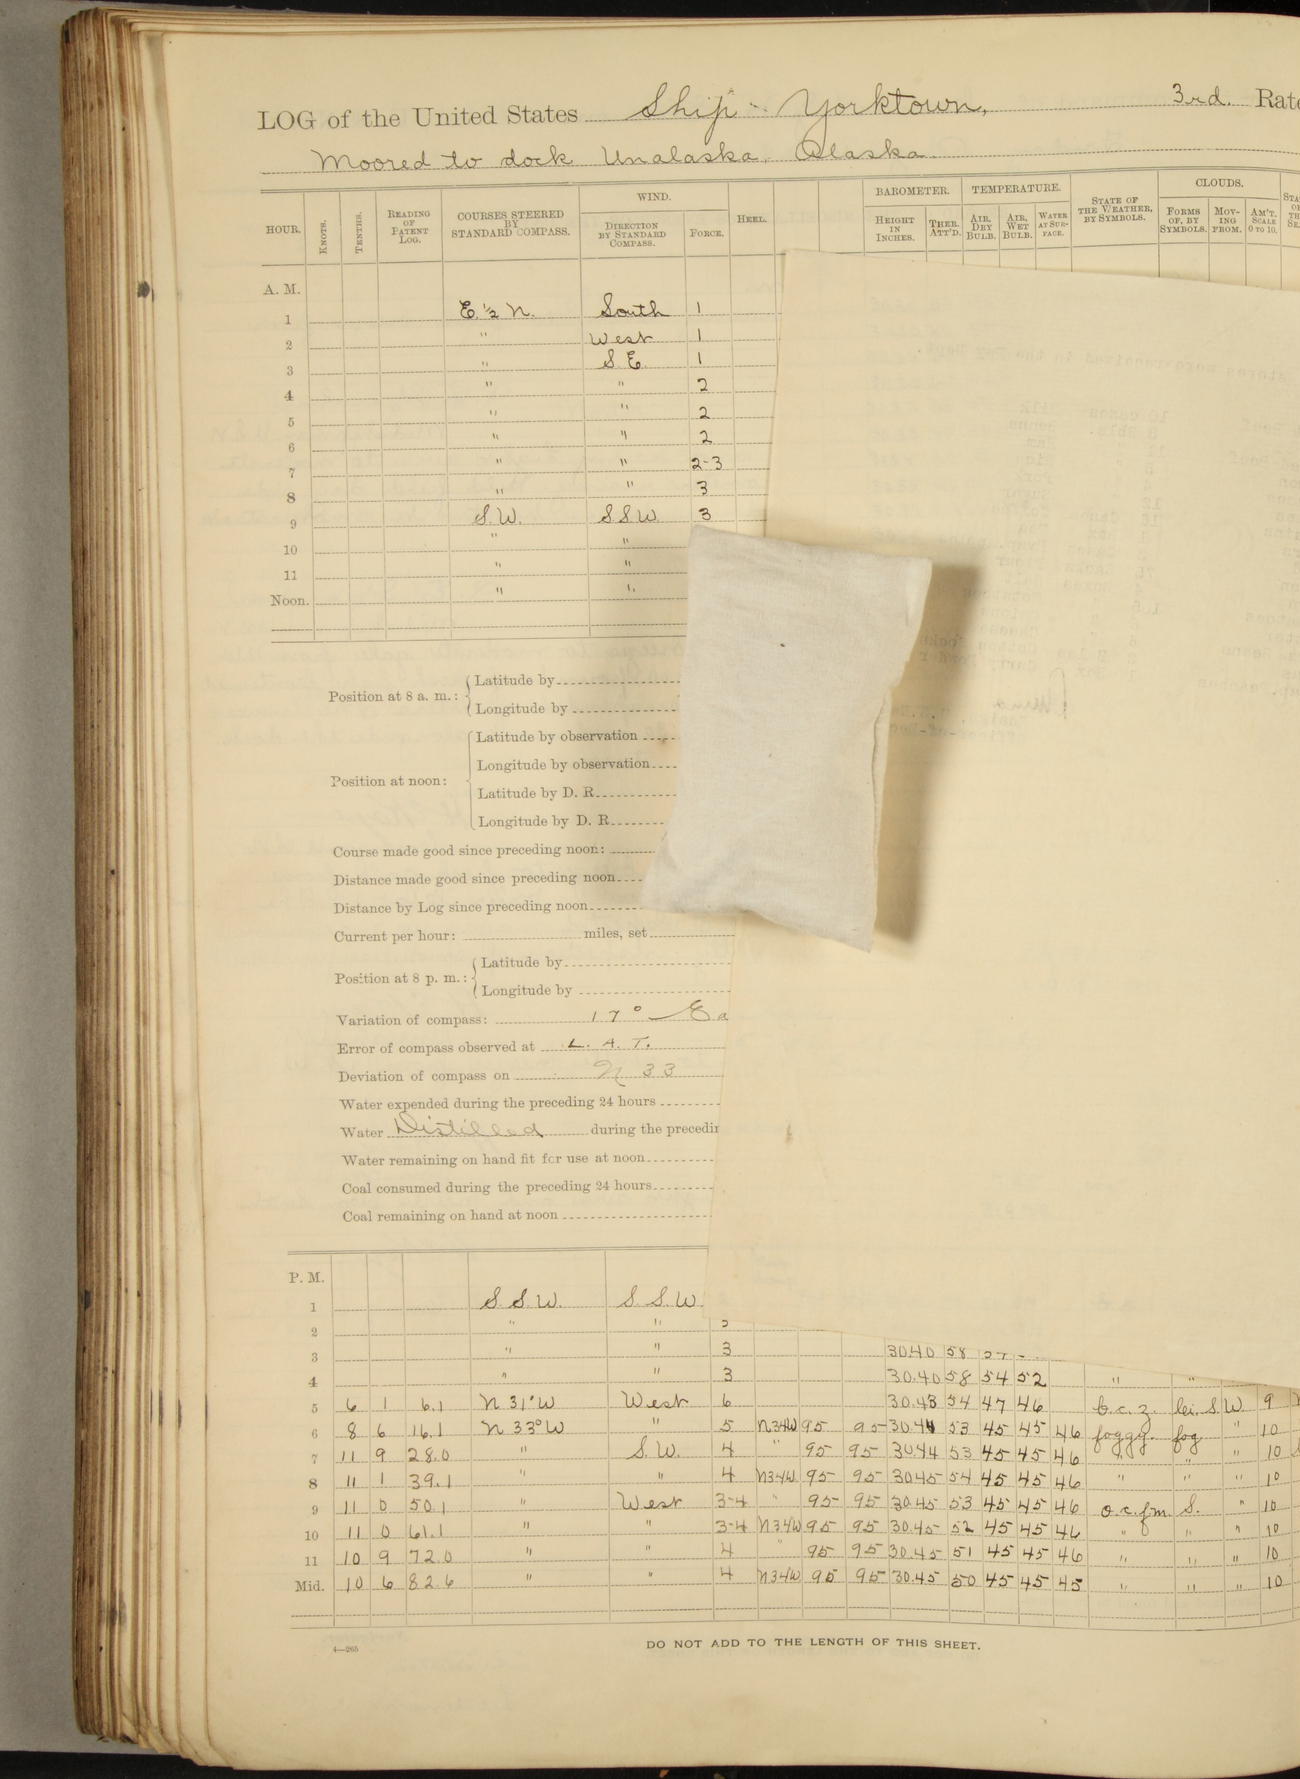 LOG of the United States Ship Yorktown, 3rd. Rate
Moored to dock Unalaska, Alaska.
HOUR. KNOTS. TENTHS. READING OF PATENT LOG. COURSES STEERED BY STANDARD COMPASS. WIND. DIRECTION BY STANDARD COMPASS. FORCE. HEEL. BAROMETER. HEIGHT IN INCHES. THER. ATT'D. TEMPERATURE. AIR, DRY BULB. AIR, WET BULB. WATER AT SURFACE. STATE OF THE WEATHER, BY SYMBOLS. CLOUDS. FORMS OF, BY SYMBOLS. MOVING FROM. AM'T. SCALE 0 TO 10.
A. M.
1 E. ½ N. South 1
2 " West 1
3 " S. E. 1
4 " " 2
5 " " 2
6 " " 2
7 " " 2-3
8 " " 3
9 S. W. S S W 3
10 " "
11 " "
Noon. " "
Position at 8 a. m.: Latitude by
Longitude by
Position at noon: Latitude by observation
Longitude by observation
Latitude by D. R.
Longitude by D. R.
Course made good since preceding noon:
Distance made good since preceding noon
Distance by Log since preceding noon
Current per hour: miles, set
Position at 8 p. m.: Latitude by
Longitude by
Variation of compass: 17° Ea
Error of compass observed at L. A. T.
Deviation of compass on N 33
Water expended during the preceding 24 hours
Water Distilled during the precedin
Water remaining on hand fit for use at noon
Coal consumed during the preceding 24 hours
Coal remaining on hand at noon
P. M.
1 S. S. W. S. S. W.
2 " "
3 " " 3 30.40 58
4 " " 3 30.40 58 54 52 " "
5 6 1 6.1 N 31° W West 6 30.43 54 47 46 b.c.z. S. W. 9
6 8 6 16.1 N 33° W " 5 N34W 95 95 30.44 53 45 45 46 foggy. fog " 10
7 11 9 28.0 " S. W. 4 " 95 95 30.44 53 45 45 46 " " " 10
8 11 1 39.1 " " 4 N34W 95 95 30.45 54 45 45 46 " " " 10
9 11 0 50.1 " West 3-4 " 95 95 30.45 53 45 45 46 o.c.f.m. S. " 10
10 11 0 61.1 " " 3-4 N34W 95 95 30.45 52 45 45 46 " " " 10
11 10 9 72.0 " " 4 " 95 95 30.45 51 45 45 46 " " " 10
Mid. 10 6 82.6 " " 4 N34W 95 95 30.45 50 45 45 45 " " " 10
4—265
DO NOT ADD TO THE LENGTH OF THIS SHEET.